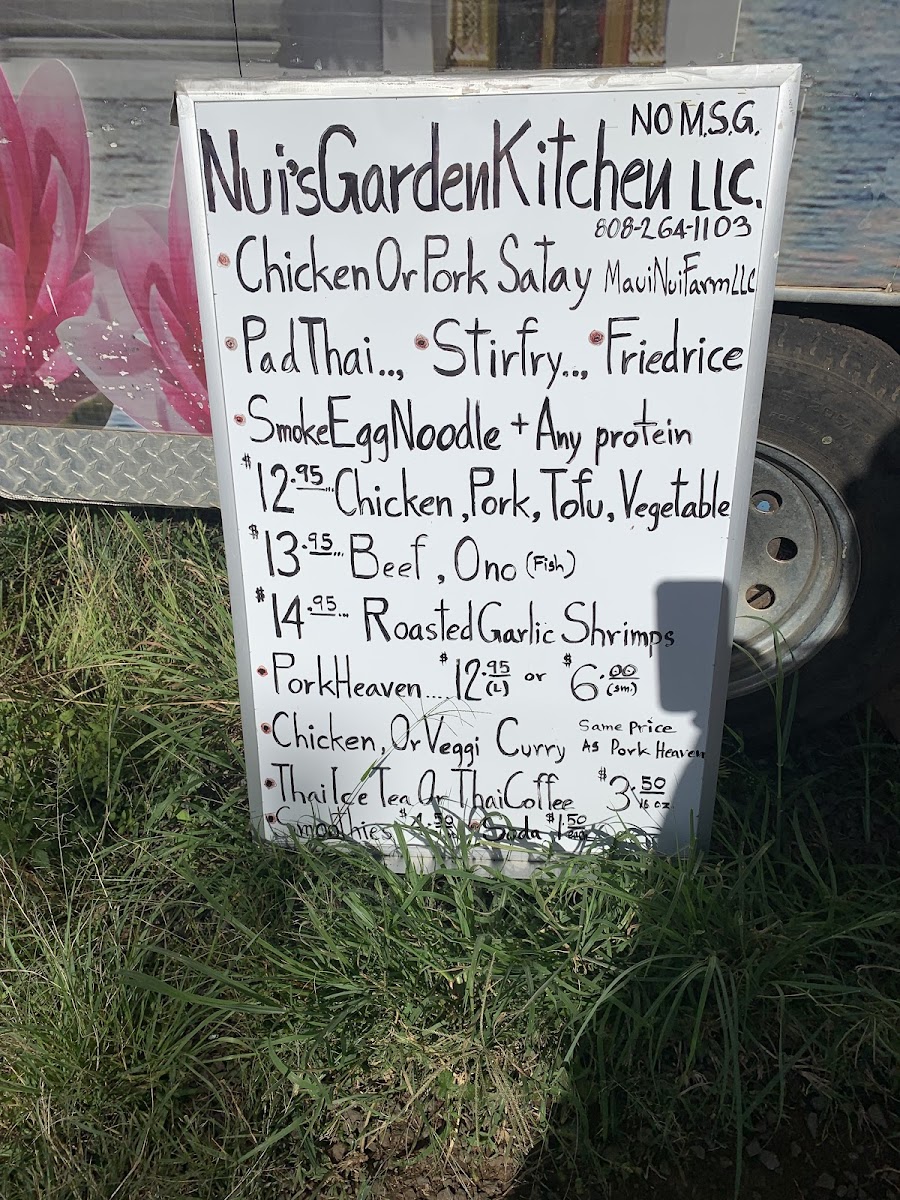 NO M.S.G.
Nui'sGardenKitchen LLC.
808-264-1103
• Chicken Or Pork Satay MauiNuiFarmLLC
• PadThai..., • Stirfry..., • Friedrice
• SmokeEggNoodle + Any protein
$12.95... Chicken, Pork, Tofu, Vegetable
$13.95... Beef, Ono (Fish)
$14.95... Roasted Garlic Shrimps
• PorkHeaven.... $12.95 (L) or $6.00 (sm.)
• Chicken, Or Veggi Curry Same Price As Pork Heaven
• Thai Ice Tea Or ThaiCoffee $3.50 16 oz
• Smoothies • Soda $1.50